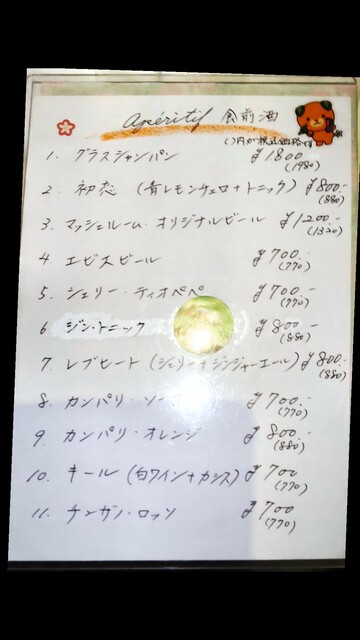 apéritif 食前酒
()内が税込価格です
1. グラスシャンパン ¥1800 (1980)
2. 初恋 (青レモンチェロ+トニック) ¥800.- (880)
3. マッシュルーム・オリジナルビール ¥1200.- (1320)
4. エビスビール ¥700.- (770)
5. シェリー・ティオペペ ¥700.- (770)
6 ジン・トニック ¥800 - (880)
7. レブヒート (シェリー+ジンジャーエール) ¥800.- (880)
8. カンパリ・ソー ¥700.- (770)
9. カンパリ・オレンジ ¥800.- (880)
10. キール (白ワイン+カシス) ¥700 (770)
11. チンザノ・ロッソ ¥700 (770)